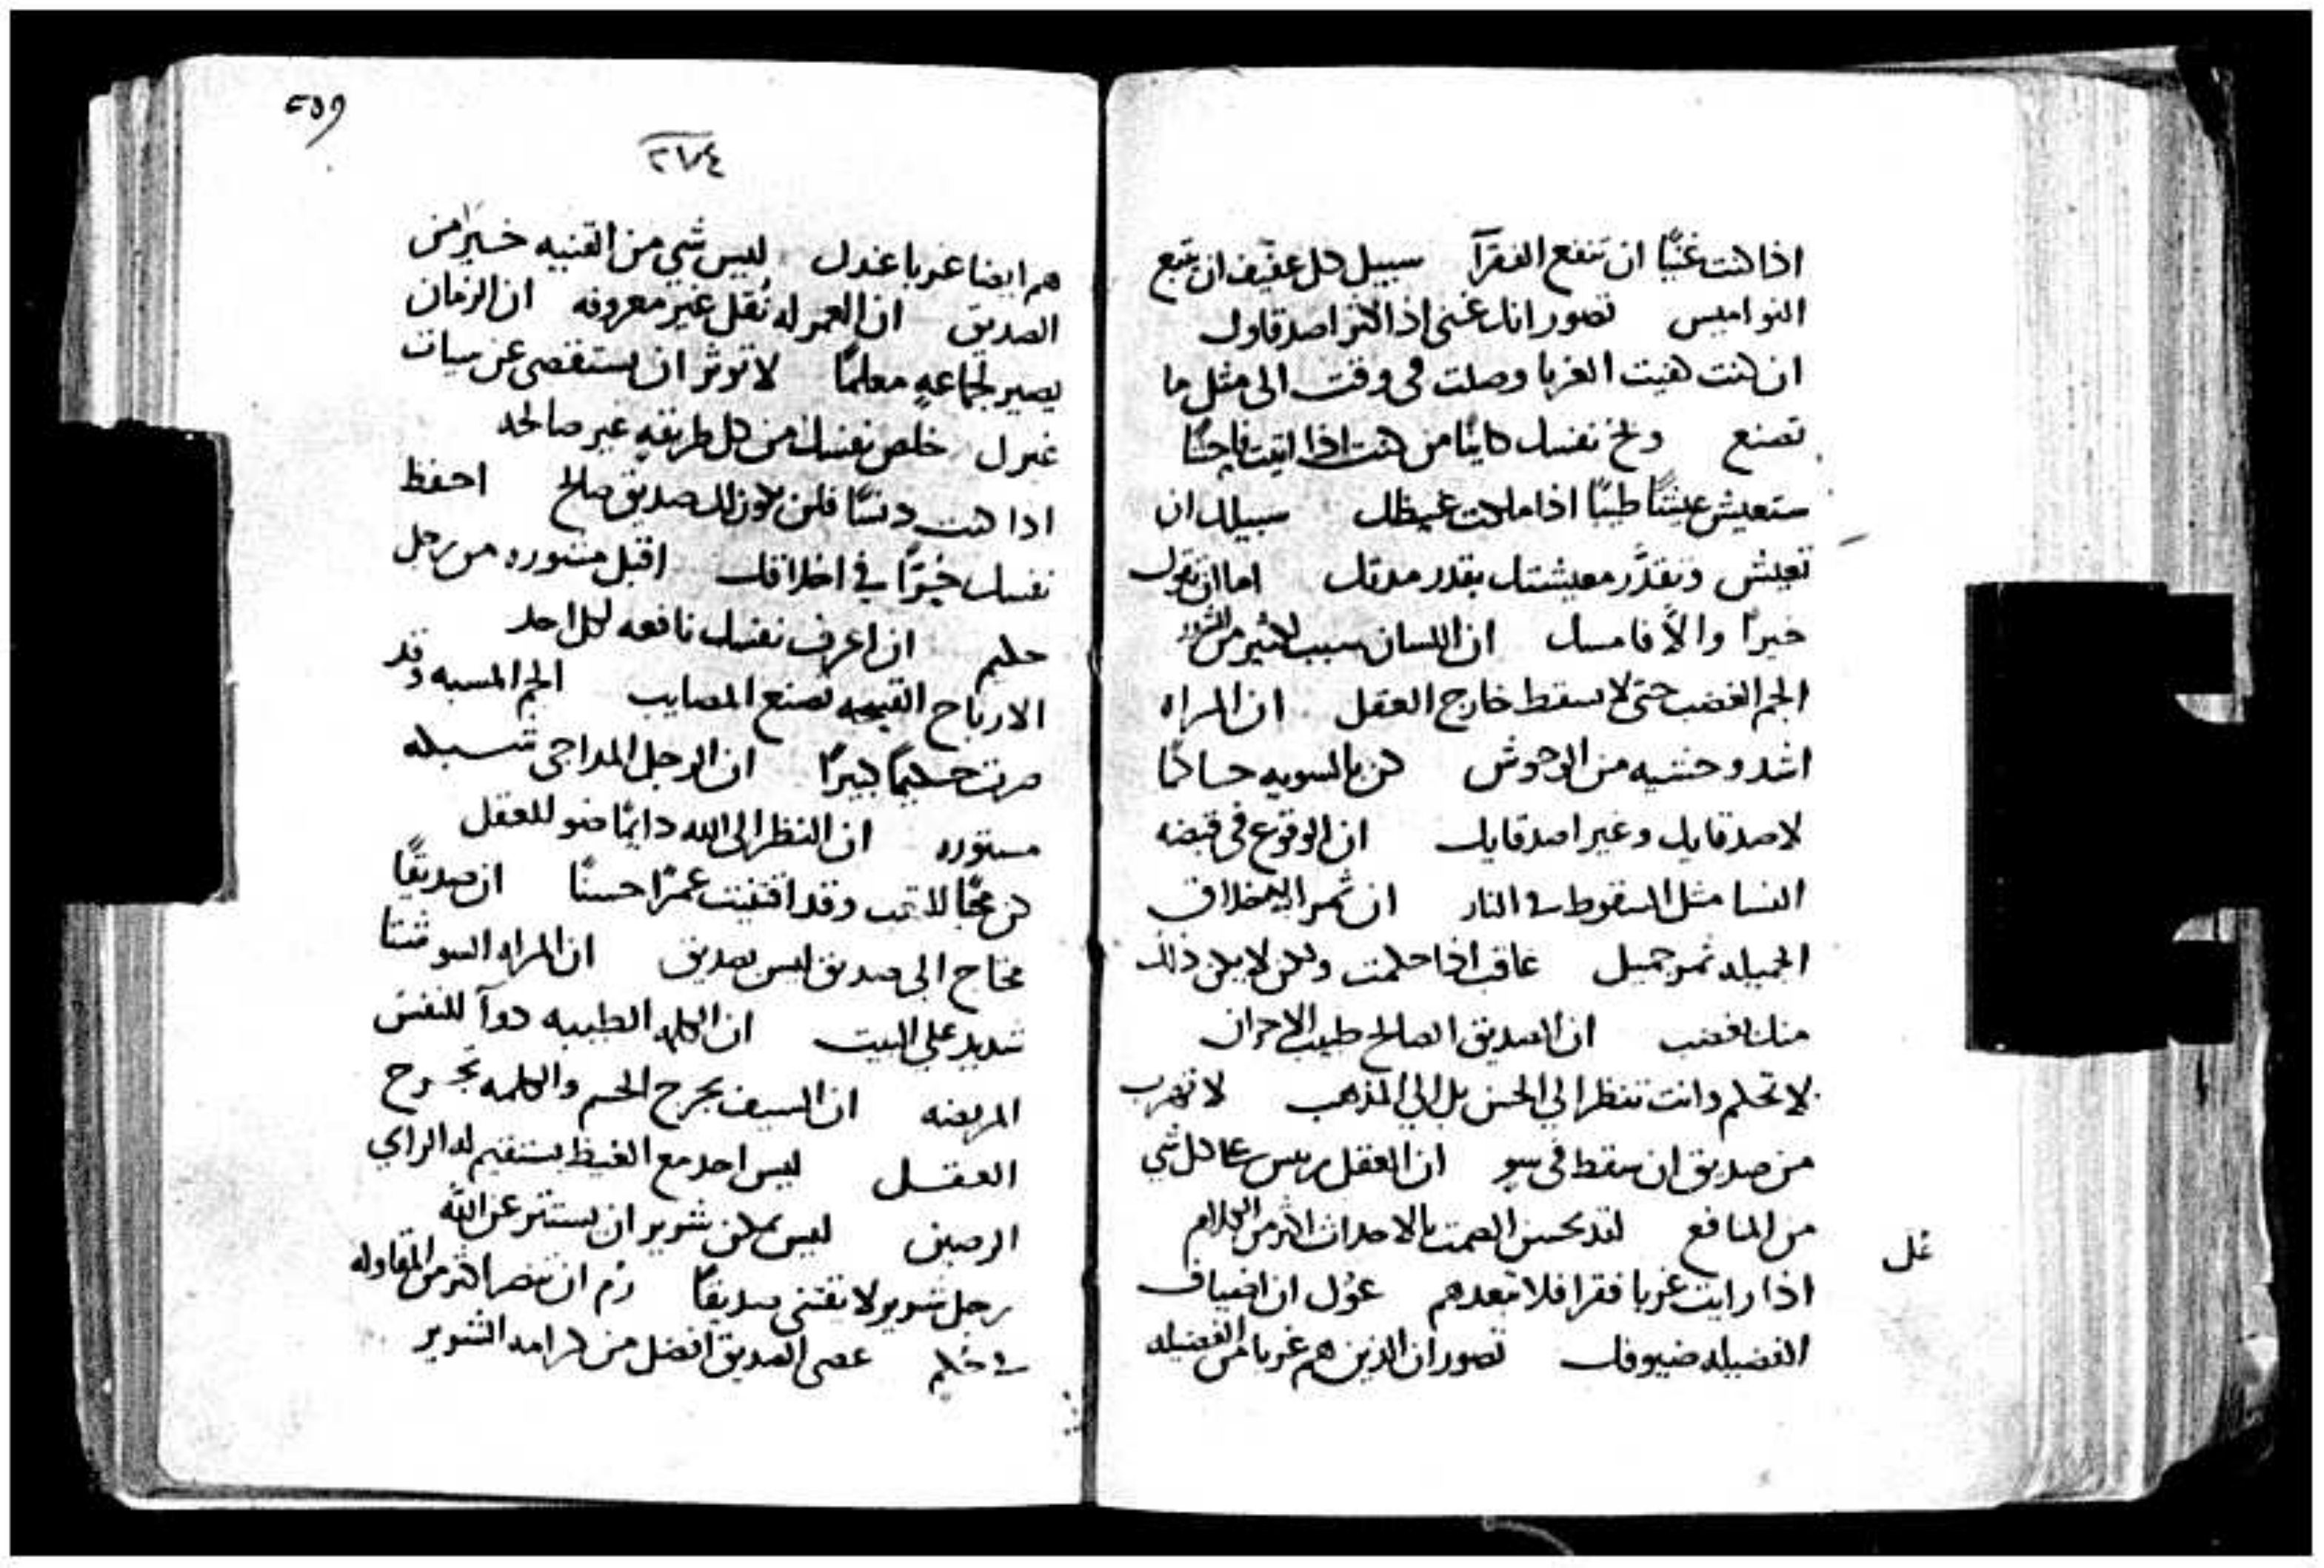 اذا كنت غنيًا ان تنفع الفقرآ سبيل كل عفيف ان يتبع
النواميس تصور انك غنى اذا اكثر اصدقاوك
ان كنت هنيت الغربا وصلت فى وقت الى مثل ما
تصنع وبخ نفسك كاينًا من كنت اذا اتيت قابحًا
ستعيش عيشًا طيبًا اذا ملكت غيظك سبيلك ان
تعيش وتقدَّر معيشتك بقدر مدقك اما ان تقول
خيرًا والاَّ فامسك ان اللسان سبب لكثير من الشرور
الجم الغضب حتى لا تسقط خارج العقل ان المراه
اشد وحشيه من الوحوش كن بالسويه حساكمًا
لاصدقايك وغير اصدقايك ان الوقوع فى قبضه
النسا مثل السقوط في النار ان ثمر الاخلاق
الجميله ثمر جميل عاقب اذا حكمت ولكن لا يكن ذلك
منك بغضب ان الصديق الصالح طبيب الاحزان
لا تحكم وانت تنظر الي الحسن بل الي المذهب لا تهرب
من صديق ان سقط فى سو ان العقل رييس علي كل شي
من المنافع لقد يحسن الصمت بالاحداث اكثر من الكلام
عُل
اذا رايت غربا فقرا فلا تبعدهم عوُل ان اضياف
الفضيله ضيوفك تصور ان الذين هم غربا من الفضيله
٢٥٩
٢٧٤
هم ايضا غربا عندك ليس شي من القنيه خيرًا من
الصديق ان العمر له نُقل غير معروفه ان الزمان
يصير لجماعهٍ معلمًا لا توثر ان تستقصى عن سيات
غيرك خلص نفسك من كل طريقهٍ غير صالحه
اذا كنت دنسًا فلن يكون لك صديق صالح احفظ
نفسك خيّرًا في اخلاقك اقبل مشوره من رجل
حكيم ان اعرف نفسك نافعه لكل احد
الارباح القبيحه تصنع المصايب الجم المسبه وقد
صرت حكيمًا كبيرًا ان الرجل المداجى
مستوره ان النظر الى الله دايمًا ضو للعقل
كن محبًا للتعب وقد اقتنيت عمرًا حسنًا ان صديقًا
محتاج الى صديق ليس بصديق ان المراه السو شتا
شديد على البيت ان الكلمه الطيبه دوآ للنفس
المريضه ان السيف يجرح الجسم والكلمه تجرح
العقل ليس احد مع الغيظ يستقيم له الراي
الرصين ليس يمكن شرير ان يستتر عن الله
رجل شرير لا تقتنى صديقًا رُم ان تبصر اكثر من المقاوله
في حكيم عصى الصديق افضل من كرامه الشرير